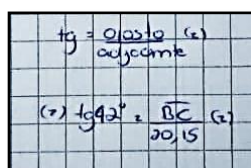 tg = oposto (2)
adjacente
(2) tg42° = BC (2)
20,15